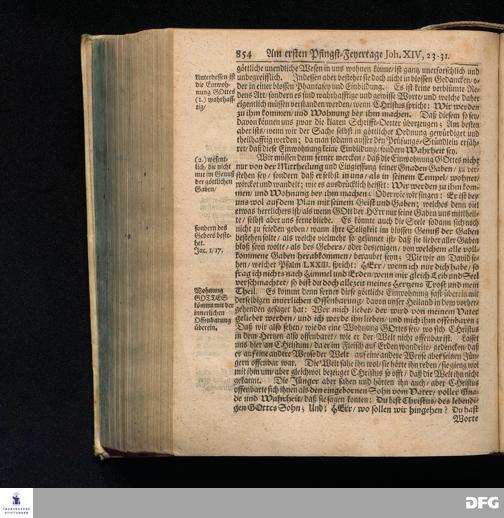 854 Am ersten Pfingst-Feyertage Joh. XIV, 23-31.
göttliche unendliche Wesen in uns wohnen könne/ ist gantz unerforschlich und
unbegreifflich. Indessen aber bestehet sie doch nicht in blossen Gedancken/ o-
der in einer blossen Phantasey und Einbildung. Es ist keine verblümte Re-
dens Art/ sondern es sind wahrhafftige und gewisse Worte/ und welche daher
eigentlich müssen verstanden werden/ wenn Christus spricht: Wir werden
zu ihm kommen/ und Wohnung bey ihm machen. Daß diesem so sey/
davon können uns zwar die klaren Schrifft-Oerter überzeugen; Am besten
aber ists/ wenn wir der Sache selbst in göttlicher Ordnung gewürdiget und
theilhafftig werden; da man sodann ausser den Prüfungs-Stündlein erfäh-
ret/ daß diese Einwohnung keine Einbildung/ sondern Wahrheit sey.
Unterdessen ist
die Einwoh-
nung GOttes
(1.) wahrhaff-
tig/
Wir müssen denn ferner mercken/ daß die Einwohnung GOttes nicht
nur von der Mittheilung und Eingiessung seiner Gnaden Gaben/ zu ver-
stehen sey/ sondern daß er selbst in uns/ als in seinem Tempel/ wohnet/
wircket und wandelt; wie es ausdrücklich heisset: Wir werden zu ihm kom-
men/ und Wohnung bey ihm machen; Oder wie wir singen: Er ist bey
uns wol auf dem Plan mit seinem Geist und Gaben; welches denn viel
etwas herrlichers ist/ als wenn GOtt der HErr nur seine Gaben uns mittheil-
te/ selbst aber uns ferne bliebe. Es könnte auch die Seele sodann schwer-
nicht zu frieden geben/ wann ihre Seligkeit im blossen Genuß der Gaben
bestehen solte/ als welche vielmehr so gesinnet ist/ daß sie lieber aller Gaben
bloß seyn wolte/ als des Gebers/ oder desjenigen/ von welchem alle voll-
kommene Gaben herabkommen/ beraubet seyn; Wie wir an David se-
hen/ welcher Psalm LXXIII. spricht: HErr/ wenn ich nur dich habe/ so
frag ich nichts nach Himmel und Erden/ wenn mir gleich Leib und Seel
verschmachtet/ so bist du doch allezeit meines Hertzens Trost und mein
Theil.
(2.) wesent-
lich/ die nicht
nur im Genuß
der göttlichen
Gaben/
sondern des
Gebers beste-
het.
Jac. 1/17.
Es kommt denn ferner diese göttliche Einwohnung fast überein mit
derselbigen innerlichen Offenbarung/ davon unser Heiland in dem vorher-
gehenden gesaget hat: Wer mich liebet/ der wird von meinem Vater
geliebet werden/ und ich werde ihn lieben/ und mich ihm offenbaren;
Daß wir also sehen/ wie da eine Wohnung GOttes sey/ wo sich Christus
in dem Hertzen also offenbaret/ wie er der Welt nicht offenbar ist. Lasset
uns hier an Christum/ da er im Fleisch auf Erden wandelte/ gedencken/ daß
er auf eine andere Weyse der Welt/ auf eine andere Weyse aber seinen Jün-
gern offenbar war. Die Welt sahe ihn wol/ sie hörte ihn reden/ sie gieng wol
mit ihm um/ aber gleichwol bezeuget Christus so offt/ daß die Welt ihn nicht
gekannt. Die Jünger aber sahen und hörten ihn auch/ aber Christus
offenbarte sich ihnen als den eingebornen Sohn vom Vater/ voller Gna-
de und Wahrheit/ daß sie sagen konten: Du bist Christus/ des lebendi-
gen GOttes Sohn; Und: HErr/ wo sollen wir hingehen? Du hast
Worte
Wohnung
GOTTES
kömmt mit der
innerlichen
Offenbarung
überein.
FRANCKESCHE
STIFTUNGEN
DFG